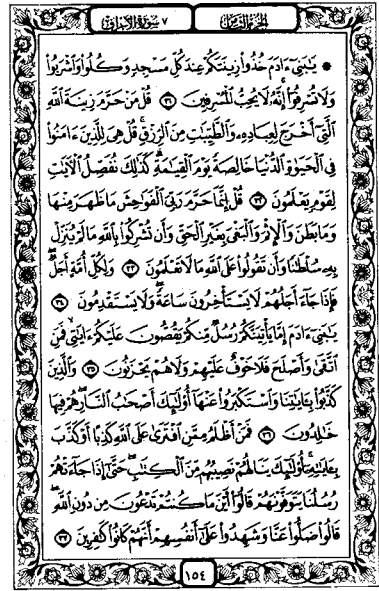 الجزء الثامن ٧ سورة الأعراف
۞ يَـٰبَنِىٓ ءَادَمَ خُذُوا۟ زِينَتَكُمْ عِندَ كُلِّ مَسْجِدٍ وَكُلُوا۟ وَٱشْرَبُوا۟
وَلَا تُسْرِفُوٓا۟ ۚ إِنَّهُۥ لَا يُحِبُّ ٱلْمُسْرِفِينَ ٣١ قُلْ مَنْ حَرَّمَ زِينَةَ ٱللَّهِ
ٱلَّتِىٓ أَخْرَجَ لِعِبَادِهِۦ وَٱلطَّيِّبَـٰتِ مِنَ ٱلرِّزْقِ ۚ قُلْ هِىَ لِلَّذِينَ ءَامَنُوا۟
فِى ٱلْحَيَوٰةِ ٱلدُّنْيَا خَالِصَةً يَوْمَ ٱلْقِيَـٰمَةِ ۗ كَذَٰلِكَ نُفَصِّلُ ٱلْـَٔايَـٰتِ
لِقَوْمٍ يَعْلَمُونَ ٣٢ قُلْ إِنَّمَا حَرَّمَ رَبِّىَ ٱلْفَوَٰحِشَ مَا ظَهَرَ مِنْهَا
وَمَا بَطَنَ وَٱلْإِثْمَ وَٱلْبَغْىَ بِغَيْرِ ٱلْحَقِّ وَأَن تُشْرِكُوا۟ بِٱللَّهِ مَا لَمْ يُنَزِّلْ
بِهِۦ سُلْطَـٰنًا وَأَن تَقُولُوا۟ عَلَى ٱللَّهِ مَا لَا تَعْلَمُونَ ٣٣ وَلِكُلِّ أُمَّةٍ أَجَلٌ ۖ
فَإِذَا جَآءَ أَجَلُهُمْ لَا يَسْتَأْخِرُونَ سَاعَةً ۖ وَلَا يَسْتَقْدِمُونَ ٣٤
يَـٰبَنِىٓ ءَادَمَ إِمَّا يَأْتِيَنَّكُمْ رُسُلٌ مِّنكُمْ يَقُصُّونَ عَلَيْكُمْ ءَايَـٰتِى ۙ فَمَنِ
ٱتَّقَىٰ وَأَصْلَحَ فَلَا خَوْفٌ عَلَيْهِمْ وَلَا هُمْ يَحْزَنُونَ ٣٥ وَٱلَّذِينَ
كَذَّبُوا۟ بِـَٔايَـٰتِنَا وَٱسْتَكْبَرُوا۟ عَنْهَآ أُو۟لَـٰٓئِكَ أَصْحَـٰبُ ٱلنَّارِ ۖ هُمْ فِيهَا
خَـٰلِدُونَ ٣٦ فَمَنْ أَظْلَمُ مِمَّنِ ٱفْتَرَىٰ عَلَى ٱللَّهِ كَذِبًا أَوْ كَذَّبَ
بِـَٔايَـٰتِهِۦٓ ۚ أُو۟لَـٰٓئِكَ يَنَالُهُمْ نَصِيبُهُم مِّنَ ٱلْكِتَـٰبِ ۖ حَتَّىٰٓ إِذَا جَآءَتْهُمْ
رُسُلُنَا يَتَوَفَّوْنَهُمْ قَالُوٓا۟ أَيْنَ مَا كُنتُمْ تَدْعُونَ مِن دُونِ ٱللَّهِ ۖ
قَالُوا۟ ضَلُّوا۟ عَنَّا وَشَهِدُوا۟ عَلَىٰٓ أَنفُسِهِمْ أَنَّهُمْ كَانُوا۟ كَـٰفِرِينَ ٣٧
١٥٤